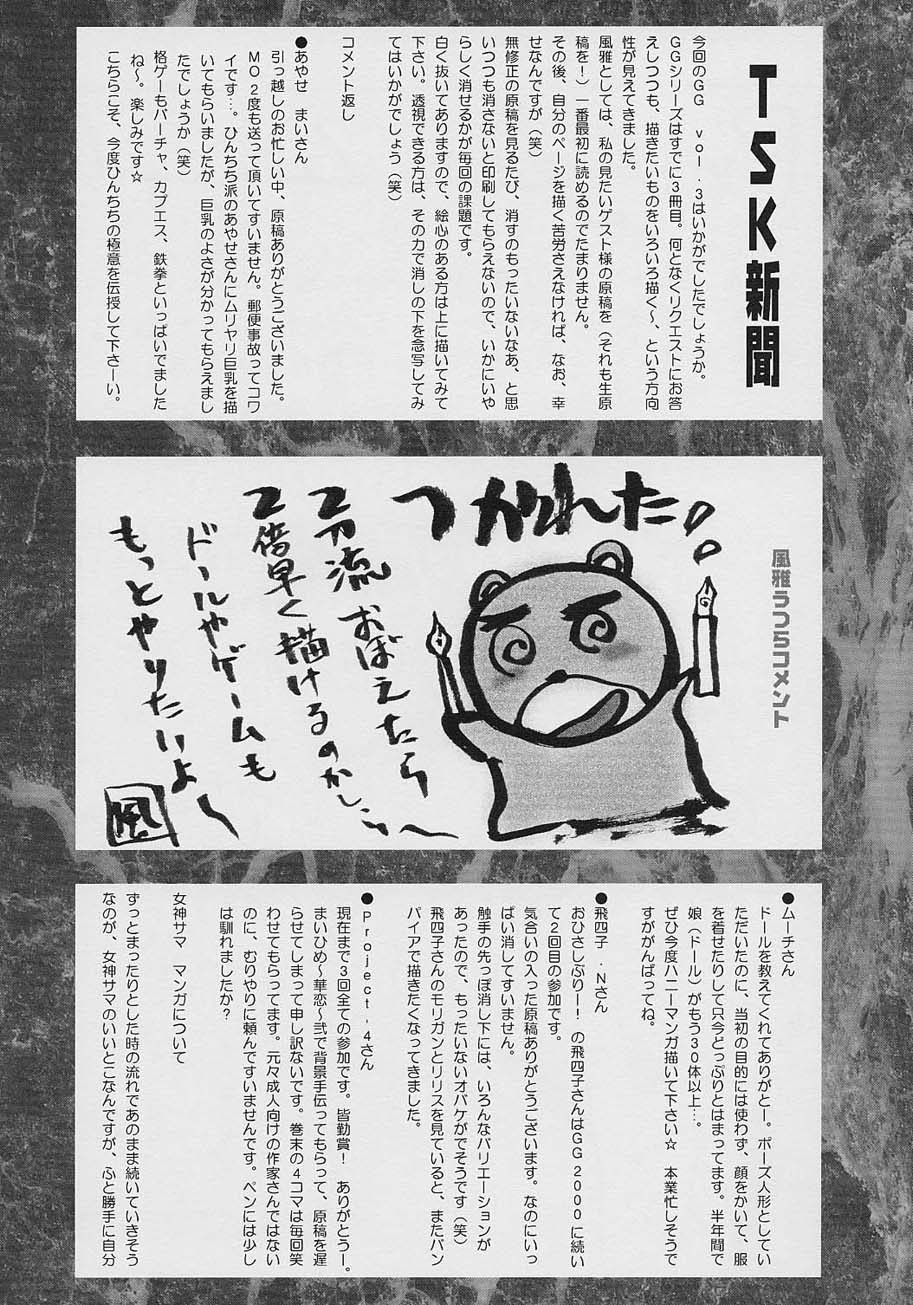 TSK新聞
今回のGG vol.3はいかがでしたでしょうか。
GGシリーズはすでに3冊目。何となくリクエストにお答
えしつつも、描きたいものをいろいろ描く〜、という方向
性が見えてきました。
風雅としては、私の見たいゲスト様の原稿を（それも生原
稿を！）一番最初に読めるのでたまりません。
その後、自分のページを描く苦労さえなければ、なお、幸
せなんですが（笑）
無修正の原稿を見るたび、消すのもったいないなあ、と思
いつつも消さないと印刷してもらえないので、いかにいや
らしく消せるかが毎回の課題です。
白く抜いてありますので、絵心のある方は上に描いてみて
下さい。透視できる方は、その力で消しの下を念写してみ
てはいかがでしょう（笑）
コメント返し
●あやせ まいさん
引っ越しのお忙しい中、原稿ありがとうございました。
MO2度も送って頂いてすいません。郵便事故ってコワ
イです…。ひんちち派のあやせさんにムリヤリ巨乳を描
いてもらいましたが、巨乳のよさが分かってもらえまし
たでしょうか（笑）
格ゲーもバーチャ、カプエス、鉄拳といっぱいでました
ね〜。楽しみです☆
こちらこそ、今度ひんちちの極意を伝授して下さーい。
風雅うつらコメント
つかれた。
2刀流おぼえたら
2倍早く描けるのかしら〜
ドールやゲームも
もっとやりたいよ〜
風
●ムーチさん
ドールを教えてくれてありがとー。ポーズ人形としてい
ただいたのに、当初の目的には使わず、顔をかいて、服
を着せたりして只今どっぷりとはまってます。半年間で
娘（ドール）がもう30体以上…。
ぜひ今度ハニーマンガ描いて下さい☆ 本業忙しそうで
すががんばってね。
●飛四子・Nさん
おひさしぶりー！の飛四子さんはGG2000に続い
て2回目の参加です。
気合いの入った原稿ありがとうございます。なのにいっ
ぱい消してすいません。
触手の先っぽ消し下には、いろんなバリエーションが
あったので、もったいないオバケがでそうです（笑）
飛四子さんのモリガンとリリスを見ていると、またバン
パイアで描きたくなってきました。
●Project-4さん
現在まで3回全ての参加です。皆勤賞！ ありがとうー。
まいひめ〜華恋〜弐で背景手伝ってもらって、原稿を遅
らせてしまって申し訳ないです。巻末の4コマは毎回笑
わせてもらってます。元々成人向けの作家さんではない
のに、むりやりに頼んですいませんです。ペンには少し
は馴れましたか？
女神サマ マンガについて
ずっとまったりとした時の流れであのまま続いていきそう
なのが、女神サマのいいとこなんですが、ふと勝手に自分